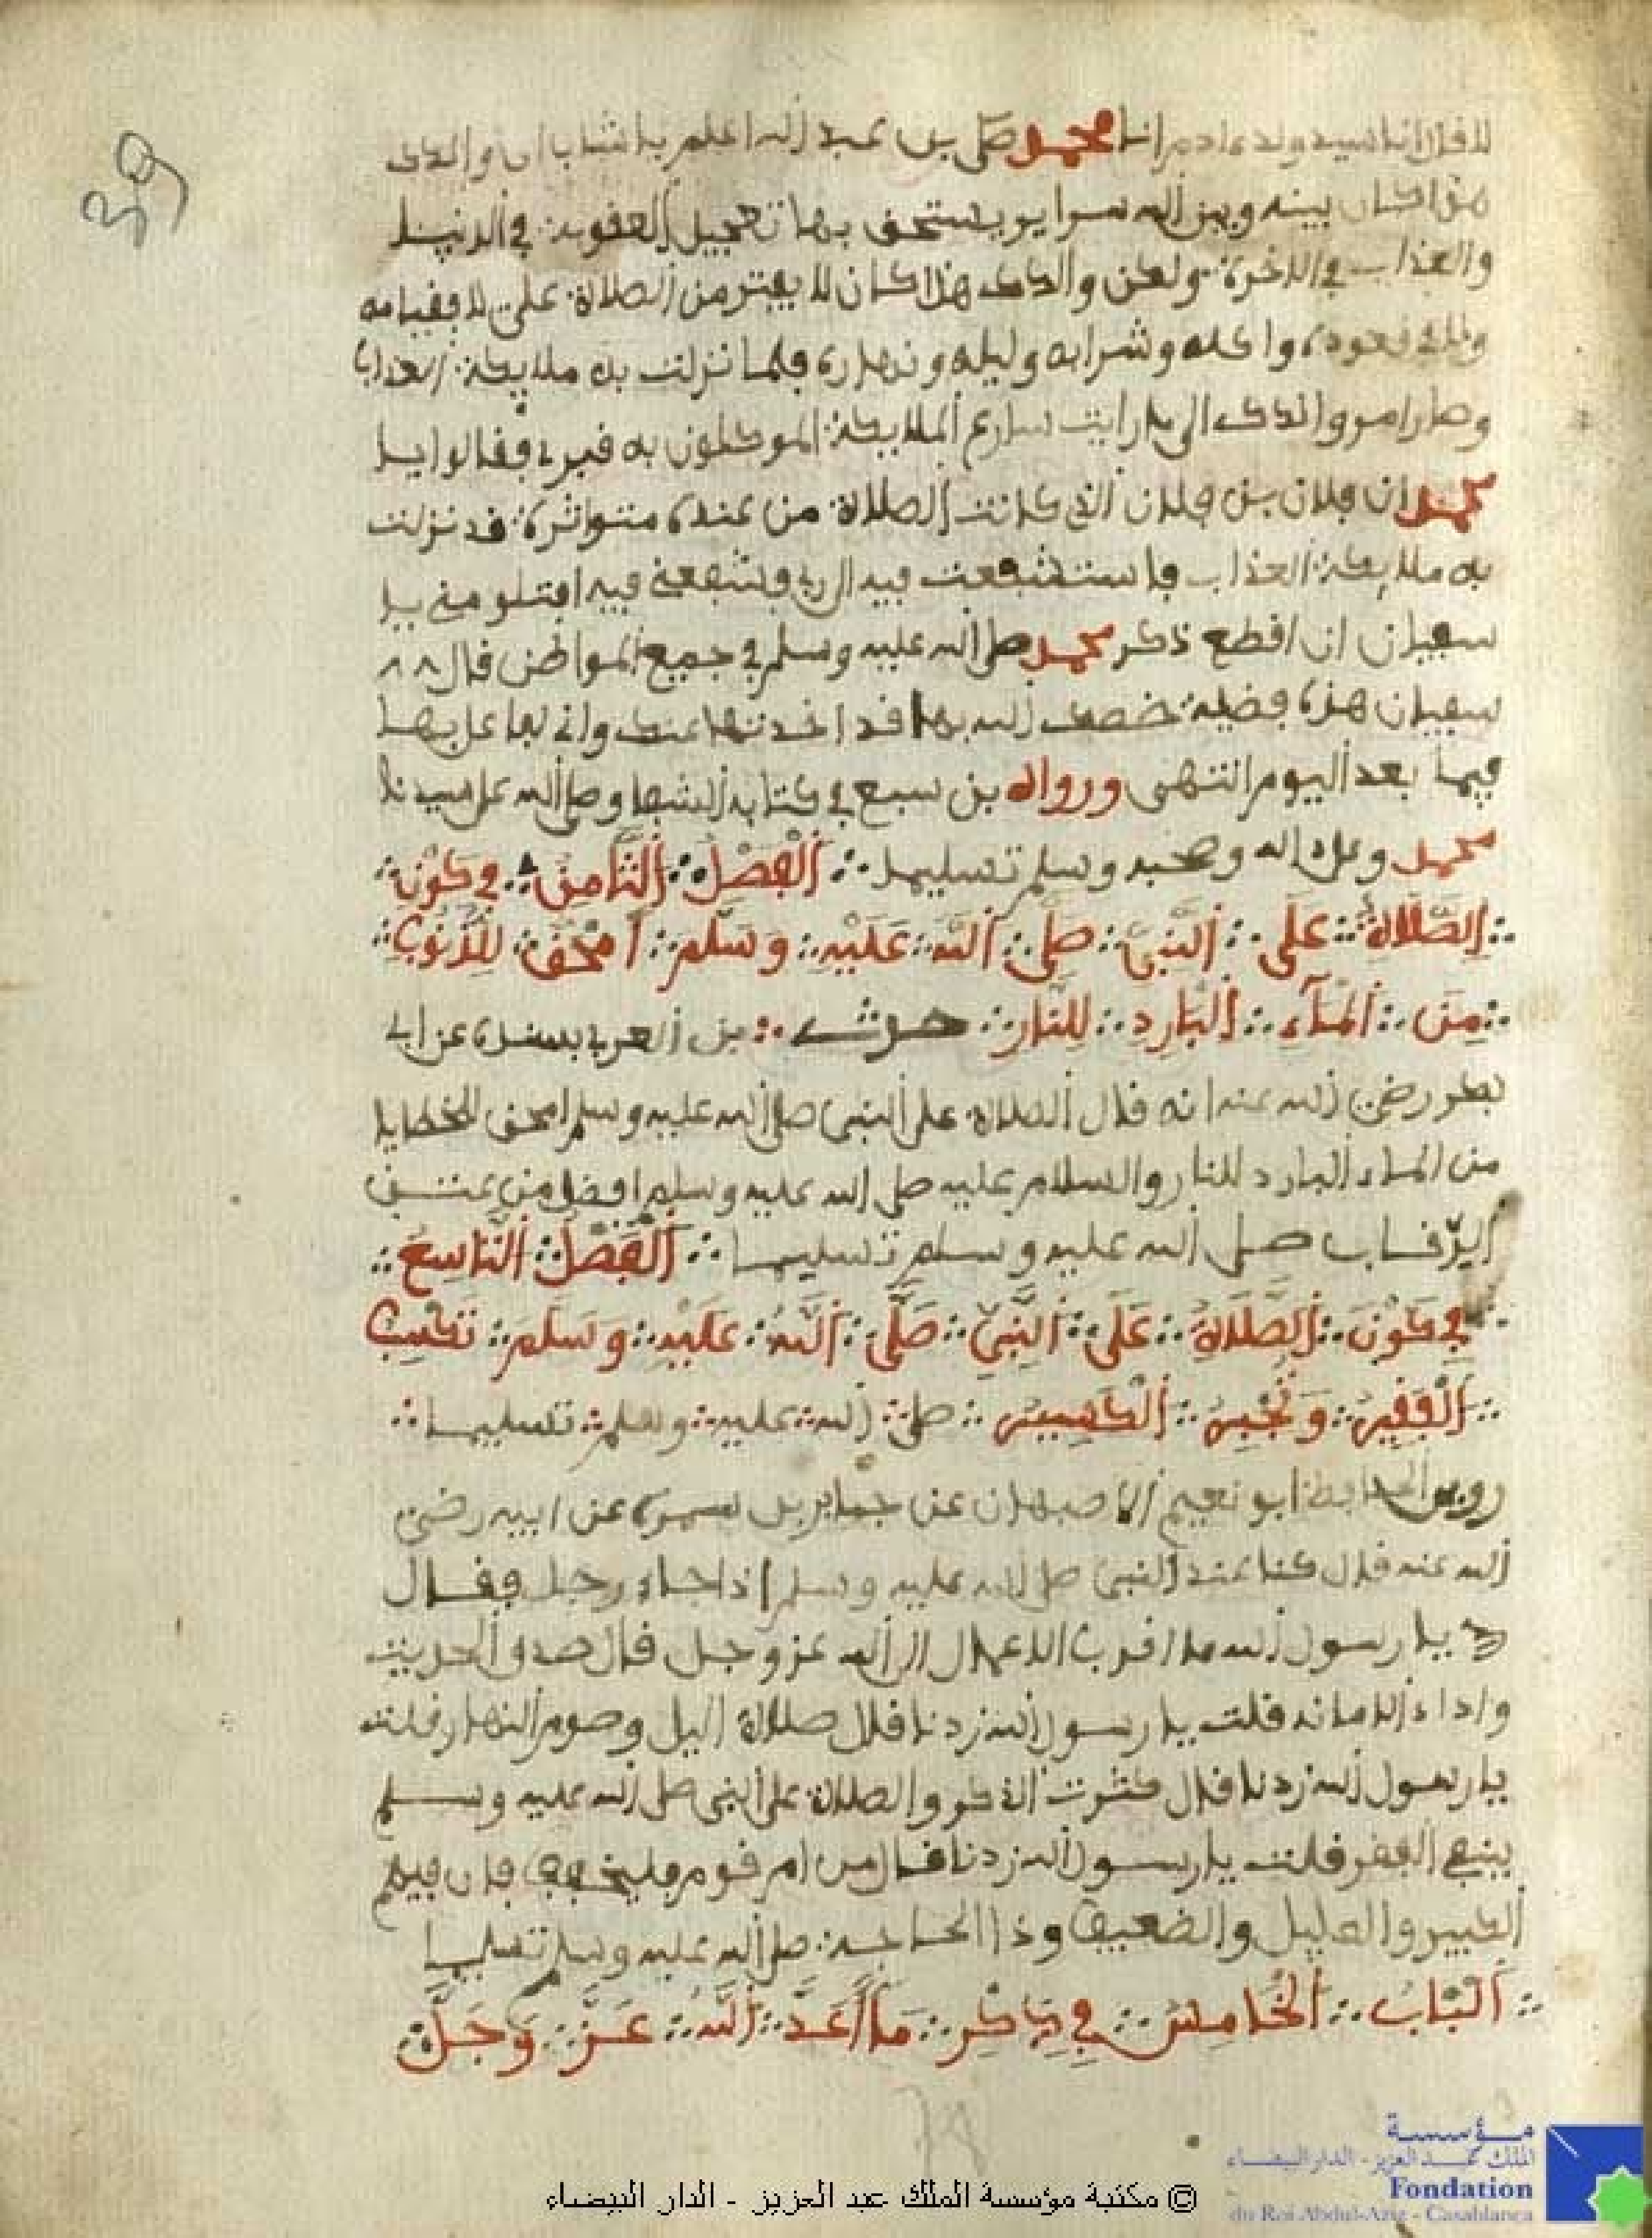 لا قال انا سيد ولد ءادم انا محمد صلى بن عبد الله اعلم يا شاب ان والدك
هذا كان بينه وبين الله سراير يستحق بها تعجيل العقوبة في الدنيا
والعذاب في الاخرة ولكن والدك هذا كان لا يفتر من الصلاة علي لا في قيامه
ولا في قعوده واكله وشرابه وليله ونهاره فلما نزلت به ملايكة العذاب
وصار امر والدك الى ما رايت سارع الملايكة الموكلون به قبري فقالوا يا
محمد ان فلان بن فلان الذي كانت الصلاة من عنده متواترة قد نزلت
به ملايكة العذاب فاستشفعت فيه الى ربي فشفعني فيه افتلومني يا
سفيان ان اقطع ذكر محمد صلى الله عليه وسلم في جميع المواطن قال
سفيان هذه فضيلة خصك الله بها قد اخذتها عنك واني لفاعل بها
فيما بعد اليوم انتهى ورواه بن سبع في كتابه الشفا وصلى الله على سيدنا
محمد وعلى ءاله وصحبه وسلم تسليما الفصل الثامن في كون
الصلاة على النبي صلى الله عليه وسلم امحق للذنوب
من الماء البارد للنار حدث بن العربي بسنده عن ابي
بكر رضي الله عنه انه قال الصلاة على النبي صلى الله عليه وسلم امحق للخطايا
من الماء البارد للنار والسلام عليه صلى الله عليه وسلم افضل من عتق
الرقاب صلى الله عليه وسلم تسليما الفصل التاسع
في كون الصلاة على النبي صلى الله عليه وسلم تكسب
الفقير وتجبر الكسير صلى الله عليه وسلم تسليما
روى الحافظ ابو نعيم الاصبهان عن جابر بن سمرة عن ابيه رضي
الله عنه قال كنا عند النبي صلى الله عليه وسلم اذا جاء رجل فقال
يا رسول الله ما اقرب الاعمال الى الله عز وجل قال صدق الحديث
واداء الامانة قلت يا رسول الله زدنا قال صلاة اليل وصوم النهار قلت
يا رسول الله زدنا قال كثرت الذكر والصلاة على النبي صلى الله عليه وسلم
ينفي الفقر قلت يا رسول الله زدنا قال من ام قوم فليخفف فان فيهم
الكبير والعليل والضعيف وذا الحاجة صلى الله عليه وسلم تسليما
الباب الخامس في ذكر ما اعد الله عز وجل
© مكتبة مؤسسة الملك عبد العزيز - الدار البيضاء
مؤسسة
الملك عبد العزيز - الدار البيضاء
Fondation
du Roi Abdul-Aziz - Casablanca